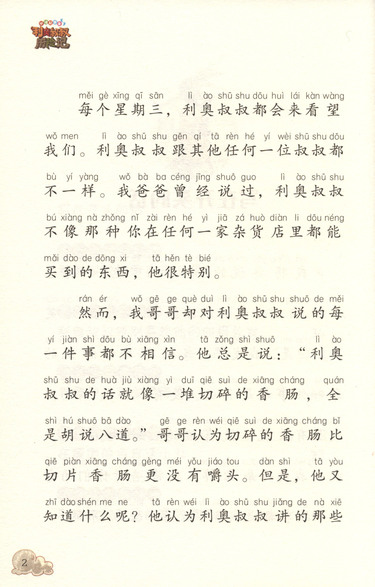 利奥叔叔
měi gè xīng qī sān lì ào shū shu dōu huì lái kàn wàng
每个星期三，利奥叔叔都会来看望
wǒ men lì ào shū shu gēn qí tā rèn hé yí wèi shū shu dōu
我们。利奥叔叔跟其他任何一位叔叔都
bù yí yàng wǒ bà ba céng jīng shuō guo lì ào shū shu
不一样。我爸爸曾经说过，利奥叔叔
bú xiàng nà zhǒng nǐ zài rèn hé yì jiā zá huò diàn li dōu néng
不像那种你在任何一家杂货店里都能
mǎi dào de dōng xi tā hěn tè bié
买到的东西，他很特别。
rán ér wǒ gē ge què duì lì ào shū shu shuō de měi
然而，我哥哥却对利奥叔叔说的每
yí jiàn shì dōu bù xiāng xìn tā zǒng shì shuō lì ào
一件事都不相信。他总是说：“利奥
shū shu de huà jiù xiàng yì duī qiē suì de xiāng cháng quán
叔叔的话就像一堆切碎的香肠，全
shì hú shuō bā dào gē ge rèn wéi qiē suì de xiāng cháng bǐ
是胡说八道。”哥哥认为切碎的香肠比
qiē piàn xiāng cháng gèng méi yǒu jiáo tou dàn shì tā yòu
切片香肠更没有嚼头。但是，他又
zhī dào shén me ne tā rèn wéi lì ào shū shu jiǎng de nà xiē
知道什么呢？他认为利奥叔叔讲的那些
2